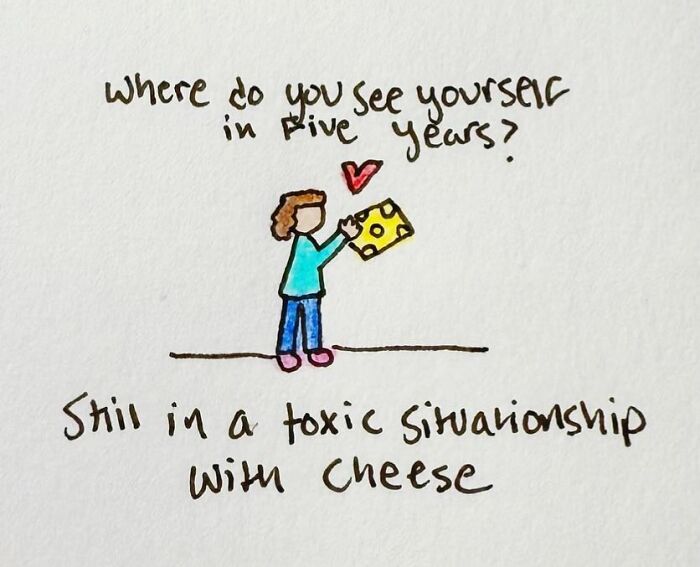 Where do you see yourself
in five years?
Still in a toxic situationship
with cheese